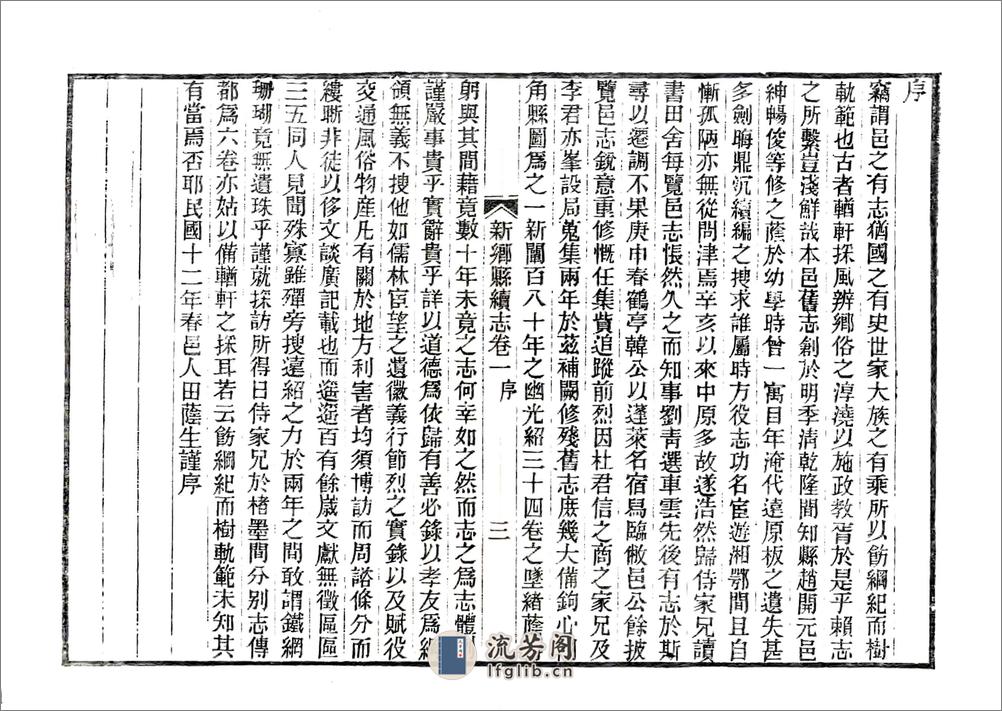 序
竊謂邑之有志猶國之有史世家大族之有乘所以飭綱紀而樹
軌範也古者輶軒採風辨鄉俗之淳澆以施政教胥於是乎賴志
之所繫豈淺鮮哉本邑舊志創於明季清乾隆間知縣趙開元邑
紳暢俊等修之蔭於幼學時曾一寓目年淹代遠原板之遺失甚
多劍晦鼎沉續編之搜求誰屬時方役志功名宦遊湘鄂間且自
慚孤陋亦無從問津焉辛亥以來中原多故遂浩然歸侍家兄讀
書田舍每覽邑志悵然久之而知事劉青選車雲先後有志於斯
尋以遷調不果庚申春鶴亭韓公以蓬萊名宿舄臨敝邑公餘披
覽邑志銳意重修慨任集貲追蹤前烈因杜君信之商之家兄及
李君亦峯設局蒐集兩年於茲補闕修殘舊志庶幾大備鉤心
角縣圖爲之一新闡百八十年之幽光紹三十四卷之墜緒蔭
新鄉縣續志卷一 序 三
躬與其間藉竟數十年未竟之志何幸如之然而志之爲志體
謹嚴事貴乎實辭貴乎詳以道德爲依歸有善必錄以孝友爲綱
領無義不搜他如儒林宦望之遺徽義行節烈之實錄以及賦役
交通風俗物産凡有關於地方利害者均須博訪而周諮條分而
縷晰非徒以侈文談廣記載也而遙遙百有餘歲文獻無徵區區
三五同人見聞殊寡雖殫旁搜遠紹之力於兩年之間敢謂鐵網
珊瑚竟無遺珠乎謹就採訪所得日侍家兄於楮墨間分別志傳
都爲六卷亦姑以備輶軒之採耳若云飭綱紀而樹軌範未知其
有當焉否耶民國十二年春邑人田蔭生謹序
流芳阁
lfglib.cn